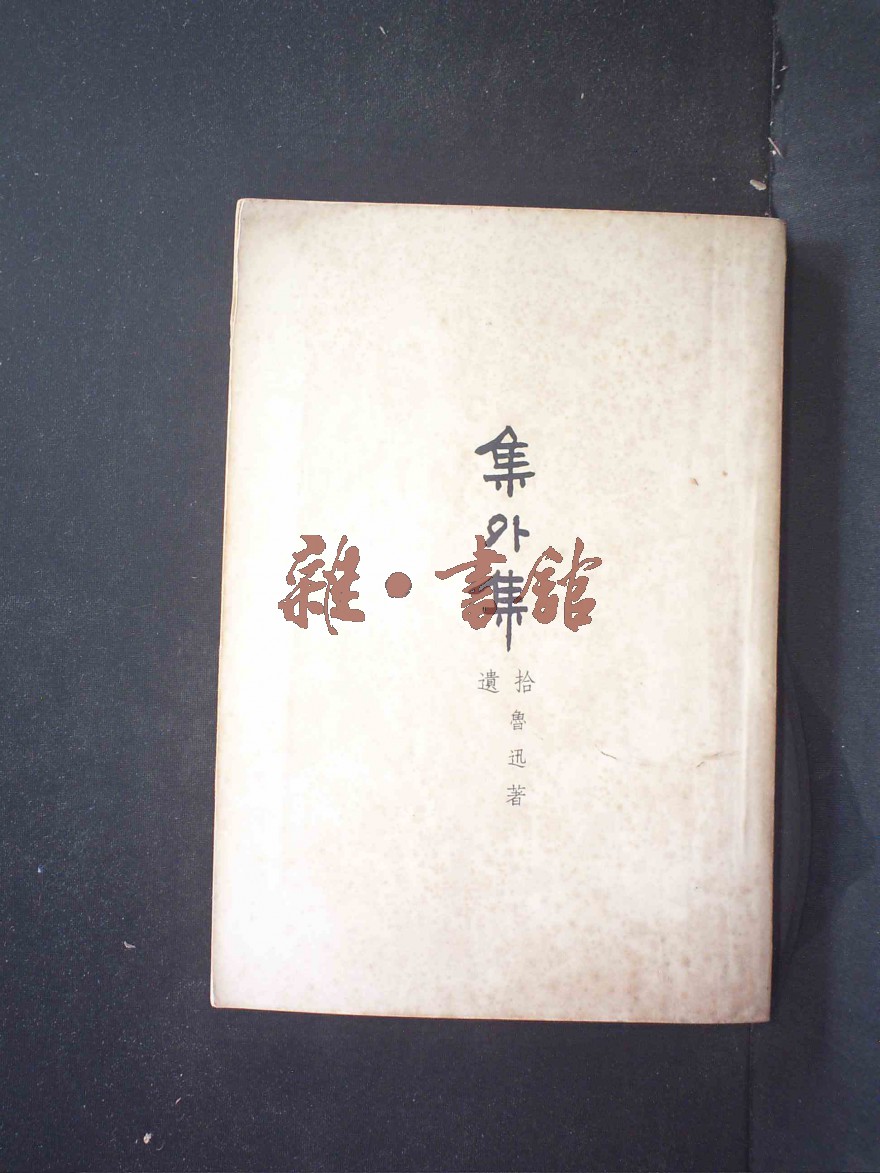 集外集
拾遺
魯迅著
雜·書館